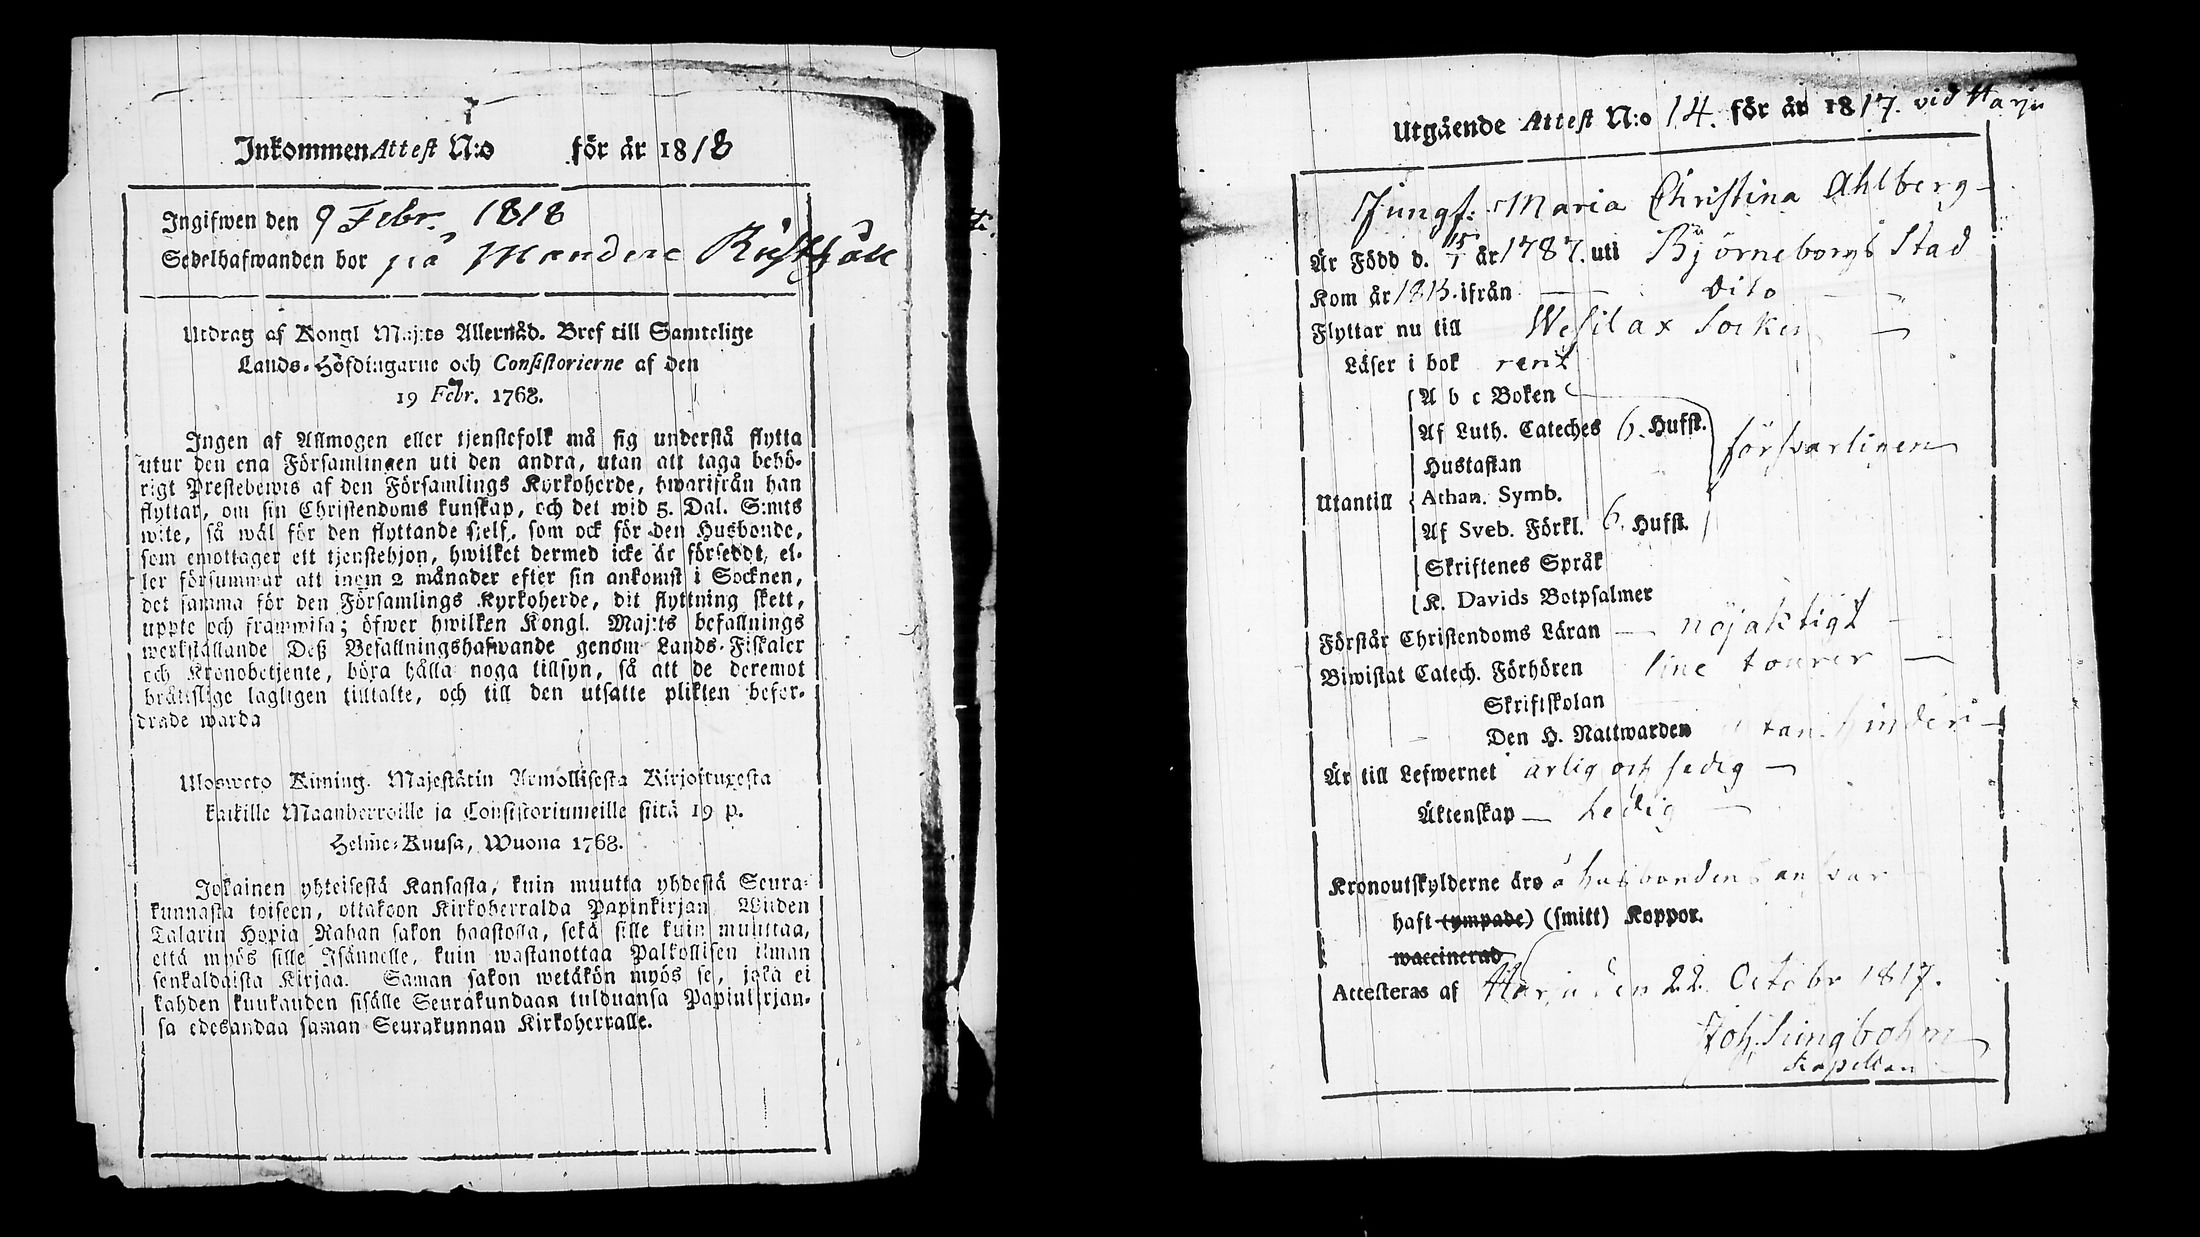 Inkommen Attest N:o för år 1818
Ingifwen den 9 Febr. 1818
Sedelhafwanden bor på Mandere Rusthåll
Utdrag af Kongl Maj:ts Allernåd. Bref till Samtelige
Lands-Höfdingarne och Consistorierne af den
19 Febr. 1768.
Ingen af Allmogen eller tjenstefolk må sig understå flytta
utur den ena Församlingen uti den andra, utan att taga behö-
rigt Prestebewis af den Församlings Kyrkoherde, hwarifrån han
flyttar, om sin Christendoms kunskap, och det wid 5. Dal. S:mts
wite, så wäl för den flyttande sjelf, som ock för den Husbonde,
som emottager ett tjenstehjon, hwilket dermed icke är försedt, el-
ler försummar att inom 2 månader efter sin ankomst i Socknen,
det samma för den Församlings Kyrkoherde, dit flyttning skett,
uppte och framwisa; öfwer hwilken Kongl. Maj:ts befallnings
werkställande Deß Befallningshafwande genom Lands-Fiskaler
och Kronobetjente, böra hålla noga tillsyn, så att de deremot
bråttslige lagligen tilltalte, och till den utsatte plikten befor-
drade warda
Ulosweto Kuning. Majestätin Armollisesta Kirjoituxesta
kaikille Maanherroille ja Consistoriumeille siitä 19 p.
Helme-Kuusa, Wuona 1768.
Jokainen yhteisestä Kansasta, kuin muutta yhdestä Seura-
kunnasta toiseen, ottakoon Kirkoherralda Papinkirjan Wiiden
Talarin Hopia Rahan sakon haastolla, sekä sille kuin muuttaa,
että myös sille Isännelle, kuin wastanottaa Palkollisen ilman
senkaldaista Kirjaa. Saman sakon wetäkön myös se, joka ei
kahden kuukauden sisälle Seurakundaan tulduansa Papinkirjan-
sa edesandaa saman Seurakunnan Kirkoherralle.
Utgående Attest N:o 14. för år 1817. vid Harju
Jungf. Maria Christina Ahlberg
Är Född d. 15/1 år 1787. uti Björneborgs Stad
Kom år 1815. ifrån dito
Flyttar nu till Wesilax Socken
Läser i bok rent
A b c Boken
Af Luth. Cateches 6. Hufst.
försvarligen
Hustaflan
Utantill Athan. Symb.
Af Sveb. Förkl. 6. Hufst.
Skriftenes Språk
K. Davids Botpsalmer
Förstår Christendoms Läran nöjaktigt
Biwistat Catech. Förhören sine tourer
Skriftskolan
Den H. Nattwarden utan hinder
Är till Lefwernet ärlig och sedig
Äktenskap ledig
Kronoutskylderne äro å husbondens answar
haft (ympade) (smitt) Koppor.
waccinerad
Attesteras af Harju den 22. Octobr 1817.
Joh. Ljungbohm
Kapellan